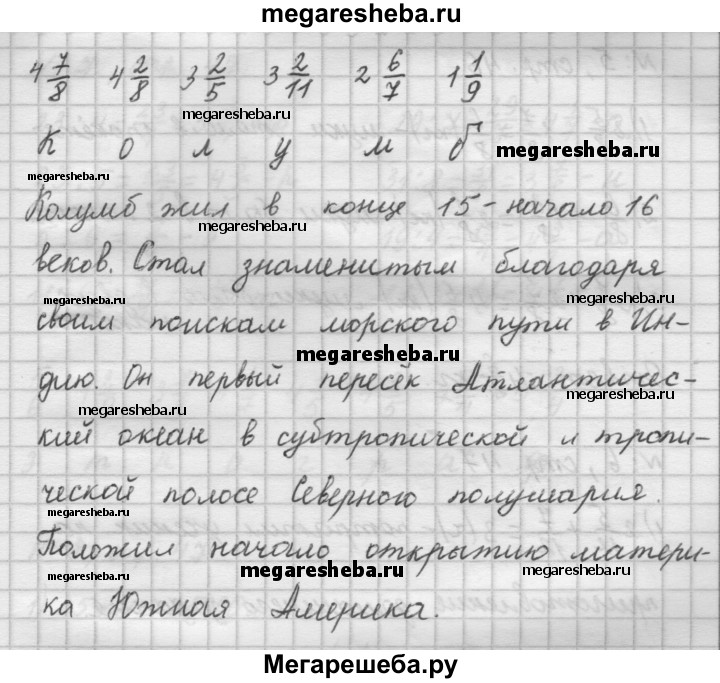 megaresheba.ru
4 7/8 4 2/8 3 2/5 3 2/11 2 6/7 1 1/9
megaresheba.ru
К О Л У М Б
megaresheba.ru
megaresheba.ru
Колумб жил в конце 15-начало 16
megaresheba.ru
веков. Стал знаменитым благодаря
megaresheba.ru megaresheba.ru
своим поискам морского пути в Ин-
megaresheba.ru
дию. Он первый пересёк Атлантичес-
megaresheba.ru megaresheba.ru
кий океан в субтропической и тропи-
ческой полосе Северного полушария.
megaresheba.ru megaresheba.ru
Положил начало открытию матери-
megaresheba.ru megaresheba.ru megaresheba.ru
ка Южная Америка.
Мегарешеба.ру